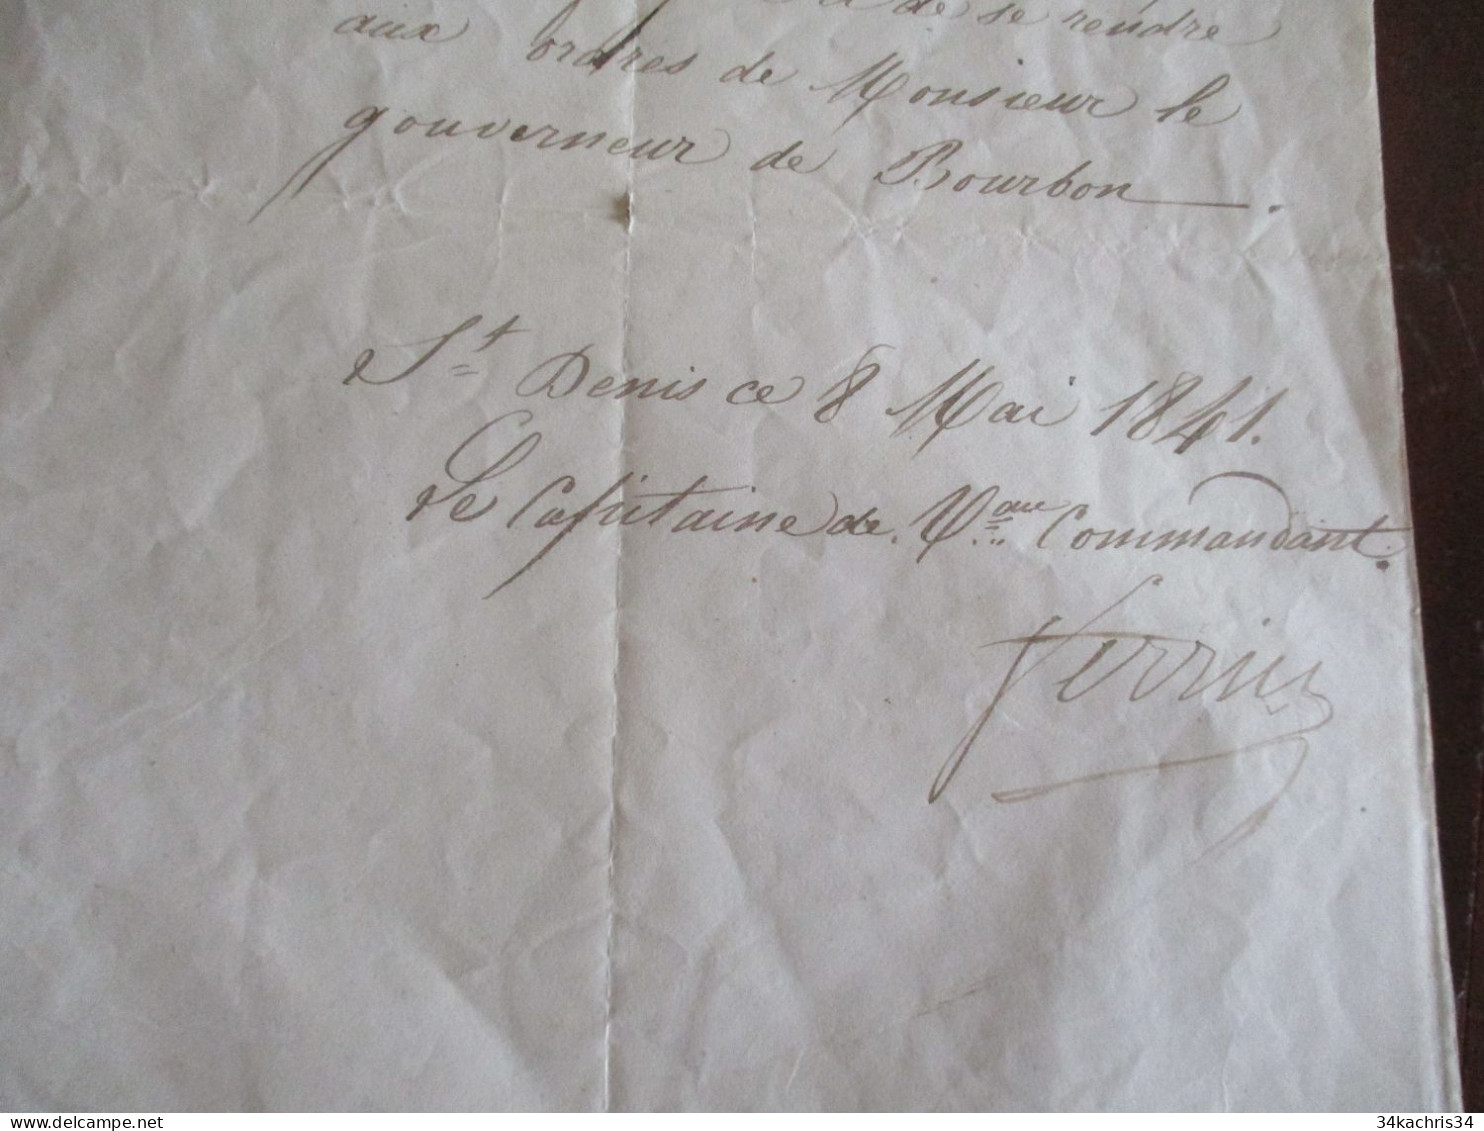 de se rendre
aux ordres de Monsieur le
gouverneur de Bourbon.
St Denis ce 8 Mai 1841.
Le Capitaine de Vau Commandant.
34kachris34
delcampe.net